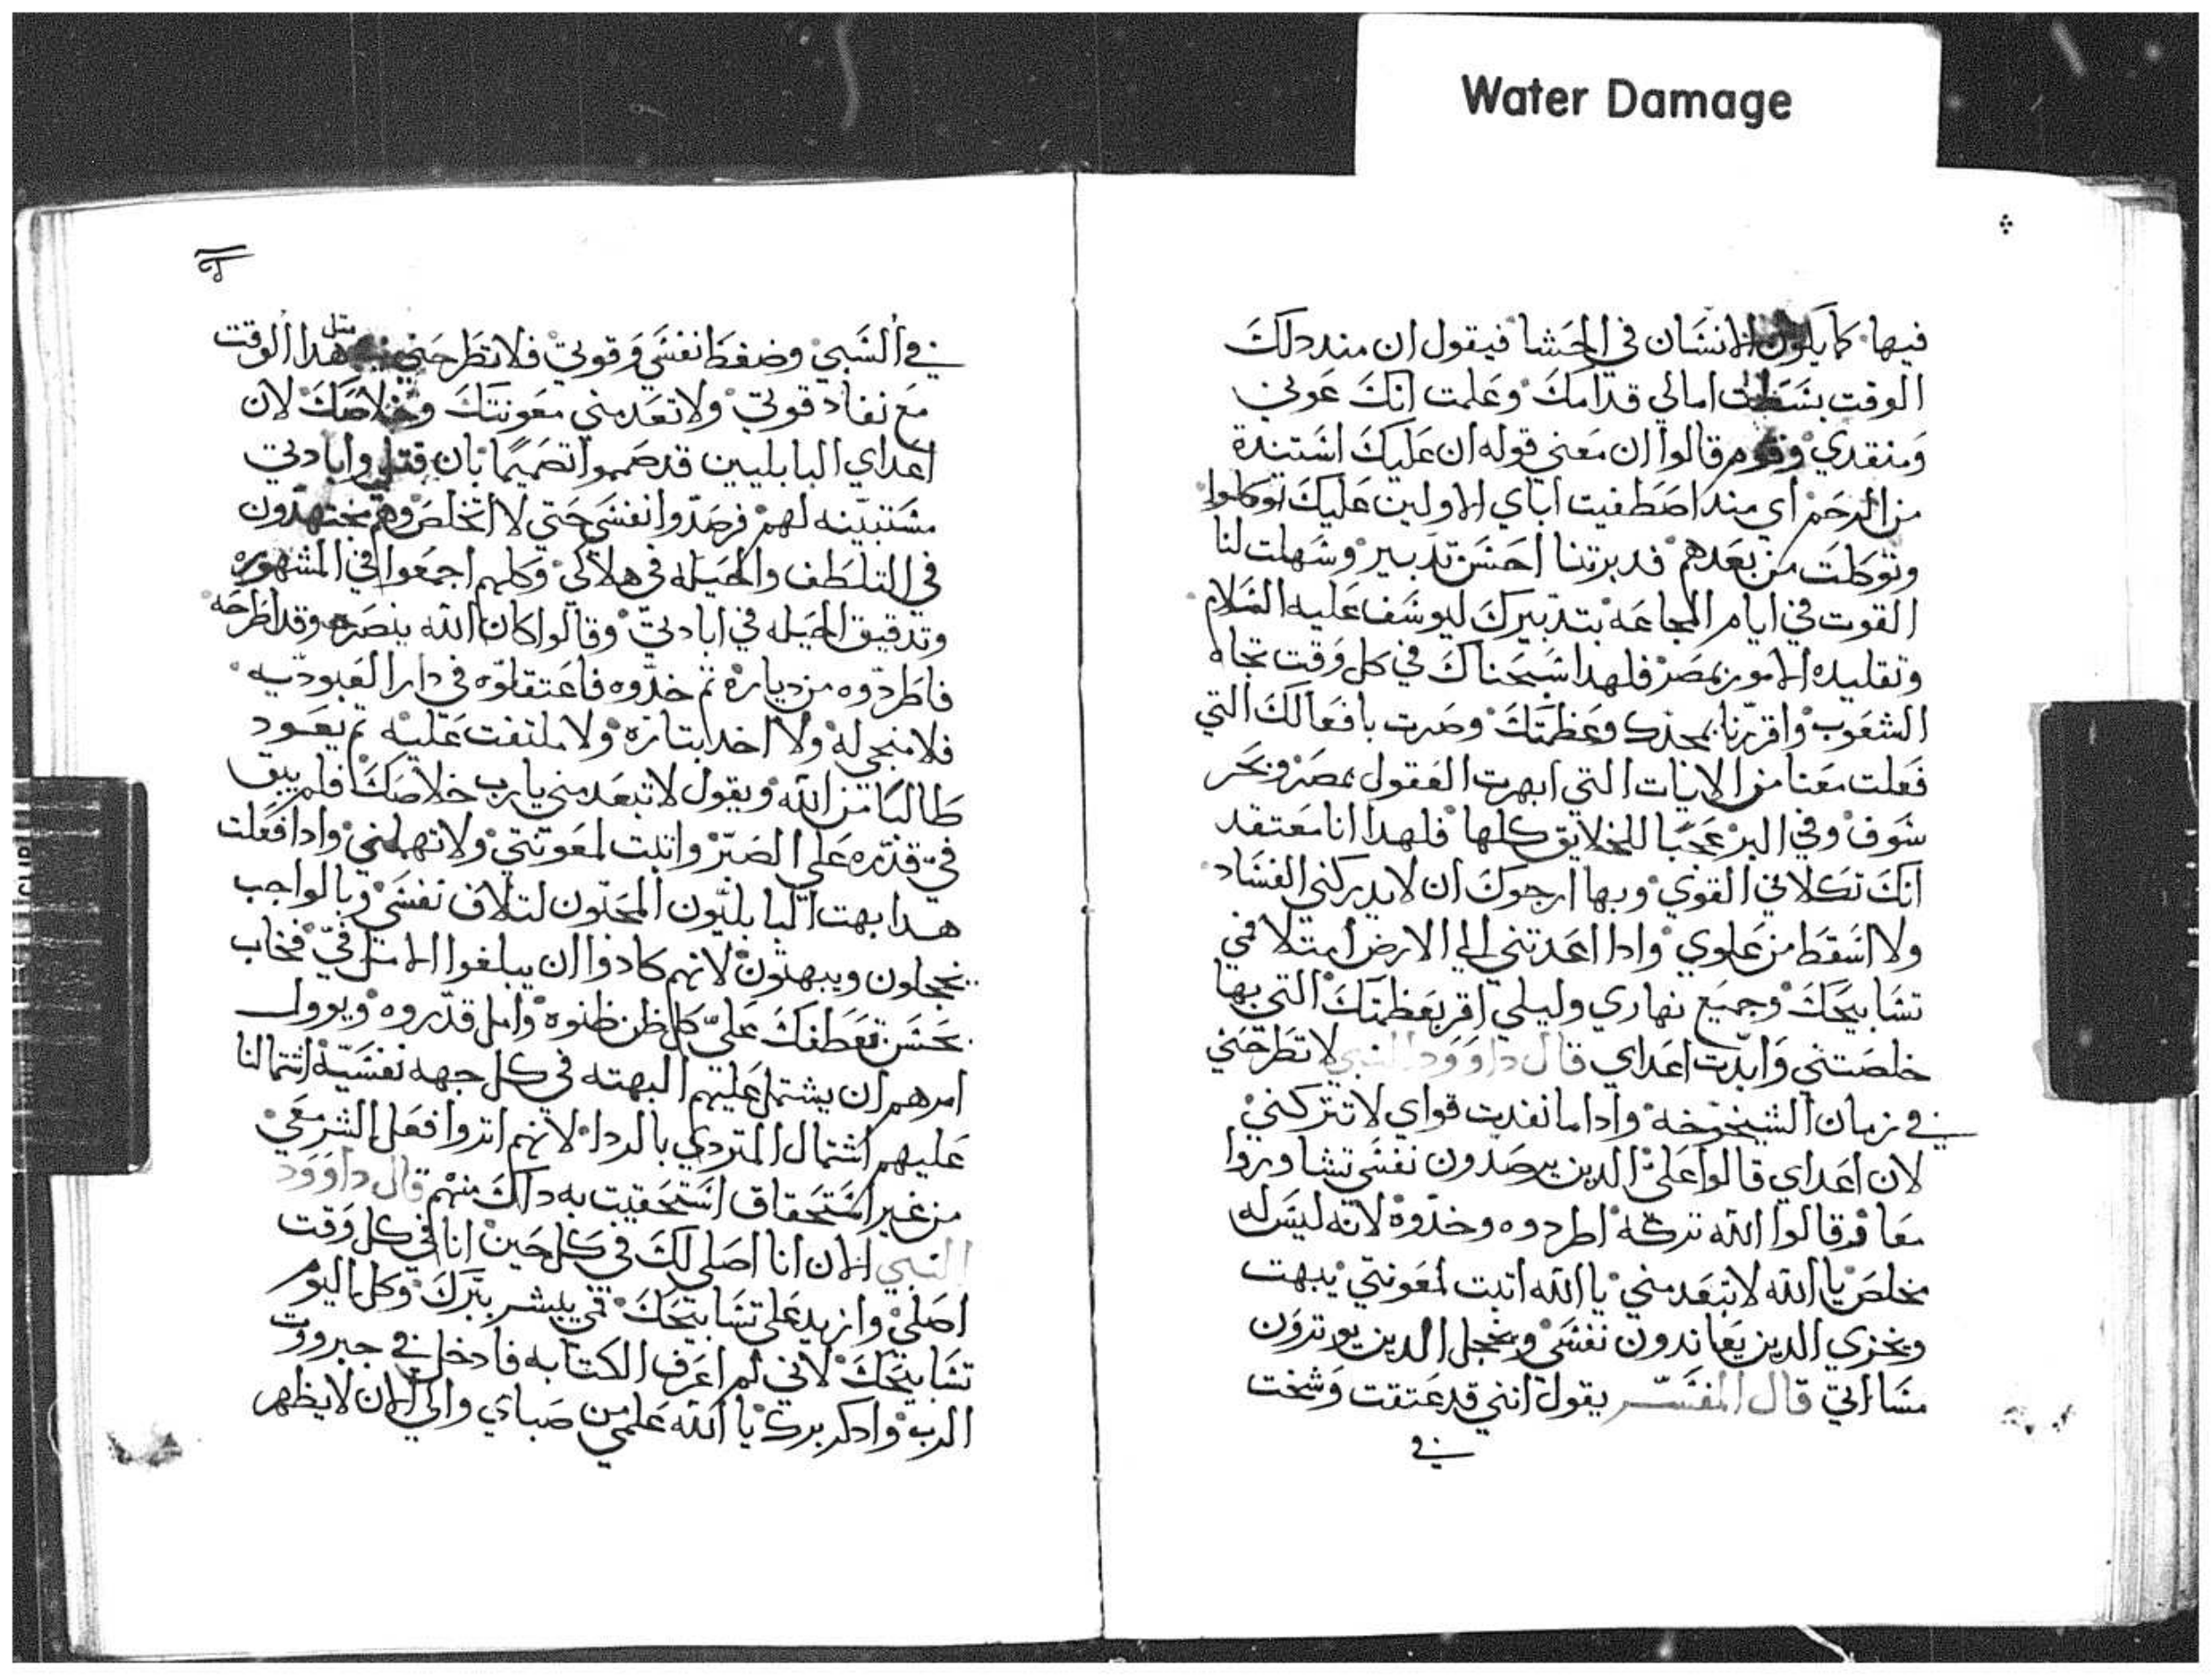 Water Damage
فيها كما يكون الانسان في الحشا فيقول ان مند دلك
الوقت بسطت امالي قدامك وعلمت انك عوني
ومنقدي وقوم قالوا ان معني قوله ان عليك استندة
من الرحم اي مند اصطفيت اباي الاولين عليك توكلوا
وتوكلت من بعدهم فدبرتنا احسن تدبير وسهلت لنا
القوت في ايام المجاعه بتدبيرك ليوسف عليه السلام
وتقليده الامور بمصر فلهدا سبحناك في كل وقت تجاه
الشعوب واقررنا بمجدك وعظمتك وصرت بافعالك التي
فعلت معنا من الايات التي ابهرت العقول بمصر وبحر
سوف وفي البر عجبا للخلايق كلها فلهدا انا معتقد
انك تكلاني القوي وبها ارجوك ان لا يدركني الفساد
ولا اسقط من علوي وادا اعدتني الي الارض امتلا فمي
تسابيحك وجميع نهاري وليلي اقر بعظمتك التي بها
خلصتني وابدت اعداي قال داوود النبي لا تطرحني
في زمان الشيخوخه وادا ما نفدت قواي لا تتركني
لان اعداي قالوا علي الدين يرصدون نفسي تشاوروا
معا وقالوا الله تركه اطردوه وخدوه لانه ليس له
مخلص يا الله لا تبعد مني يا الله اتيت لمعونتي يبهت
ويخزي الدين يعاندون نفسي ويخجل الدين يوترون
مساااتي قال المفسر يقول انني قد عتقت وشخت
في
في السبي وضغطا نفسي وقوتي فلا تطرحني مثل هدا الوقت
مع نفاد قوتي ولا تعدمني معونتك وخلاصك لان
اعداي البابليين قد صمموا تصميما بان قتلي وابادتي
مستبينه لهم فرصدوا نفسي حتي لا اتخلص وهم مجتهدون
في التلطف والحيله في هلاكي وكلهم اجمعوا في المشهوره
وتدقيق الحيله في ابادتي وقالوا كان الله ينصره وقد اطرحه
فاطردوه من دياره تم خدوه فاعتقلوه في دار العبوديه
فلا منجي له ولا اخد بتاره ولا ملتفت عليه تم يعود
طالبا من الله ويقول لا تبعد مني يارب خلاصك فلم يبق
في قدره علي الصبر واتيت لمعونتي ولا تهملني وادا فعلت
هدا بهت البابليون المحبون لتلاف نفسي وبالواجب
يخجلون ويبهتون لانهم كادوا ان يبلغوا الامتل في فخاب
بحسن تعطفك علي كل ظن ظنوه وامل قدروه ويوول
امرهم ان يشتمل عليهم البهته في كل جهه نفسيه اشتمالنا
عليهم اشتمال المتردي بالردا لانهم اتروا فعل الشر معي
من غير استحقاق استحقيت به داك منهم قال داوود
النبي الان انا اصلي لك في كل حين انا في كل وقت
اصلي وازيد علي تسابيحك فمي يبشر ببرك وكل اليوم
تسابيحك لاني لم اعرف الكتابه فادخل في جبروت
الرب وادكر برك يا الله علمني من صباي والي الان لا يظهر